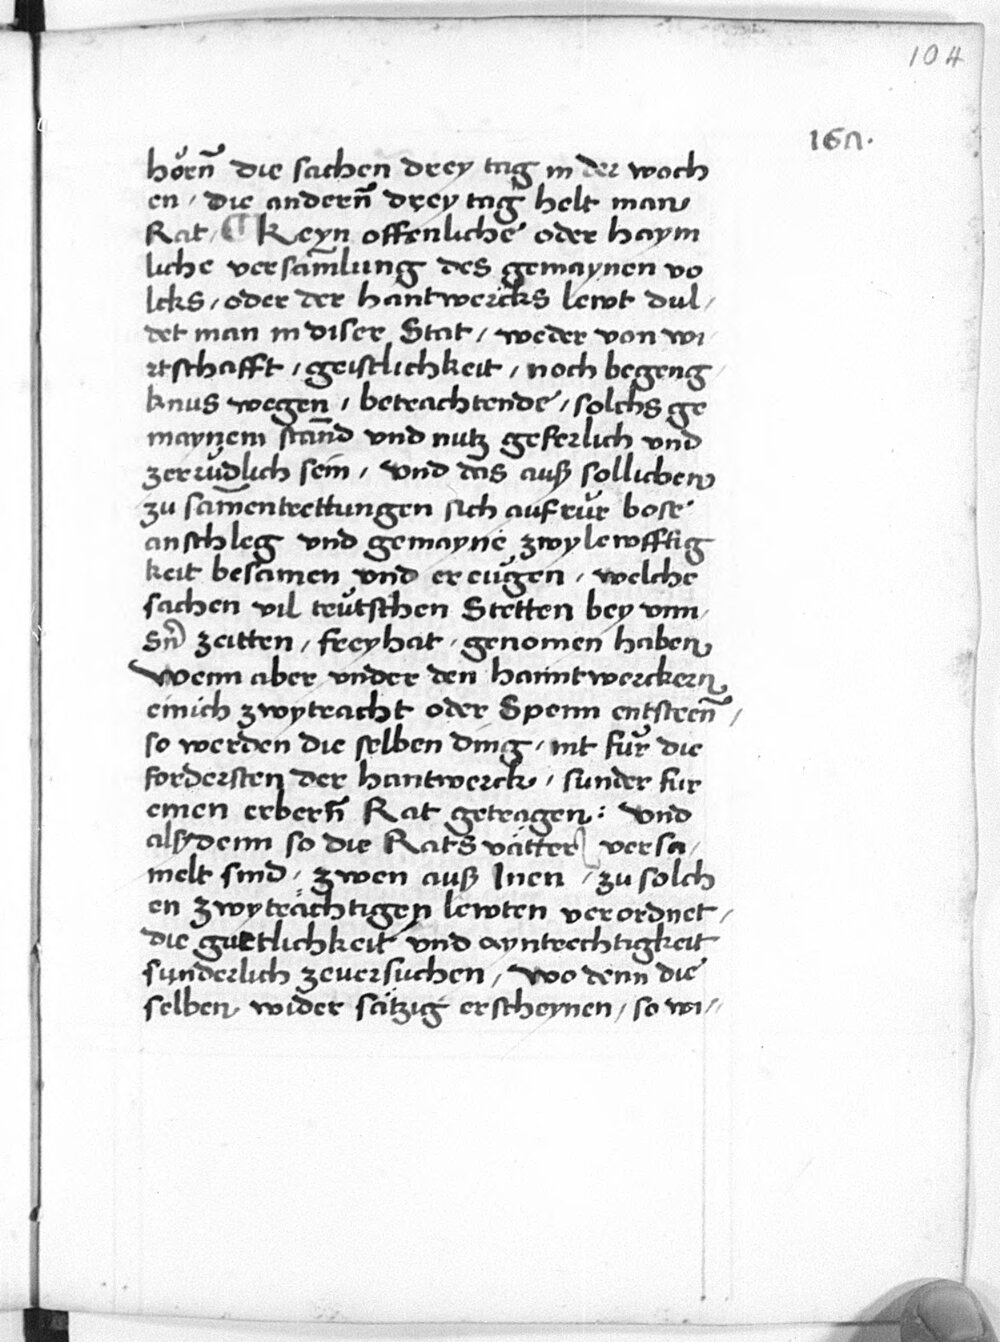 104
167.
hörñ die sachen drey tag in der woch
en / die anderñ drey tag helt man
Rat / ¶ Keyn offenliche oder haym
liche versam̄lung des gemaynen vo
lcks / oder der hantwercks lewt dul /
det man in diser Stat / weder von wi /
rtschafft / geistlichkeit / noch begeng /
knus wegen / betrachtende / solchs ge
maynem stan̄d vnd nutz geferlich vnd
zerrüdlich sein / vnd das auß sollichen
zu sam̄entrettungen sich aufrůr bose
anschleg vnd gemayne zwylewfftig
keit besamen vnd ereügen / welche
sachen vil teütschen Stetten bey vnn /
sñ zeitten / freyhat / genomen haben
Wenn aber vnder den hanntwerckern
einich zwytracht oder Spenn entsteeñ /
so werden die selben ding / nit für die
fordersten der hantwerck / sunder fur
einen erberñ Rat getragen : vnd
alßdenn so die Rats vätter versa /
melt sind / zwen auß Inen / zu solch
en zwyträchtigen lewten verordnet /
die guetlichkeit vnd ayntrechtigkeit
sunderlich zeuersuchen / wo denn die
selben wider sätzig erscheynen / so wi //